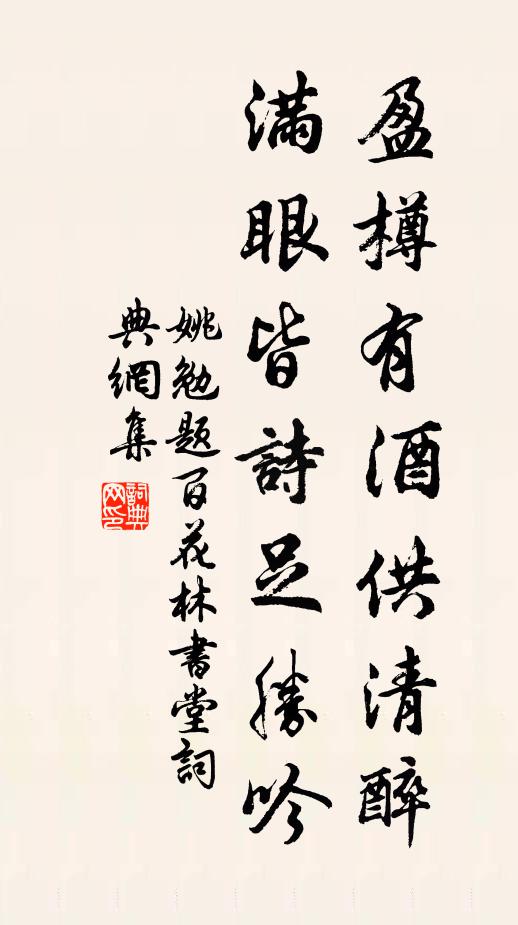 盈樽有酒供清醉
滿眼皆詩足勝吟
姚勉題百花林書堂詞
典網集
詞典网印